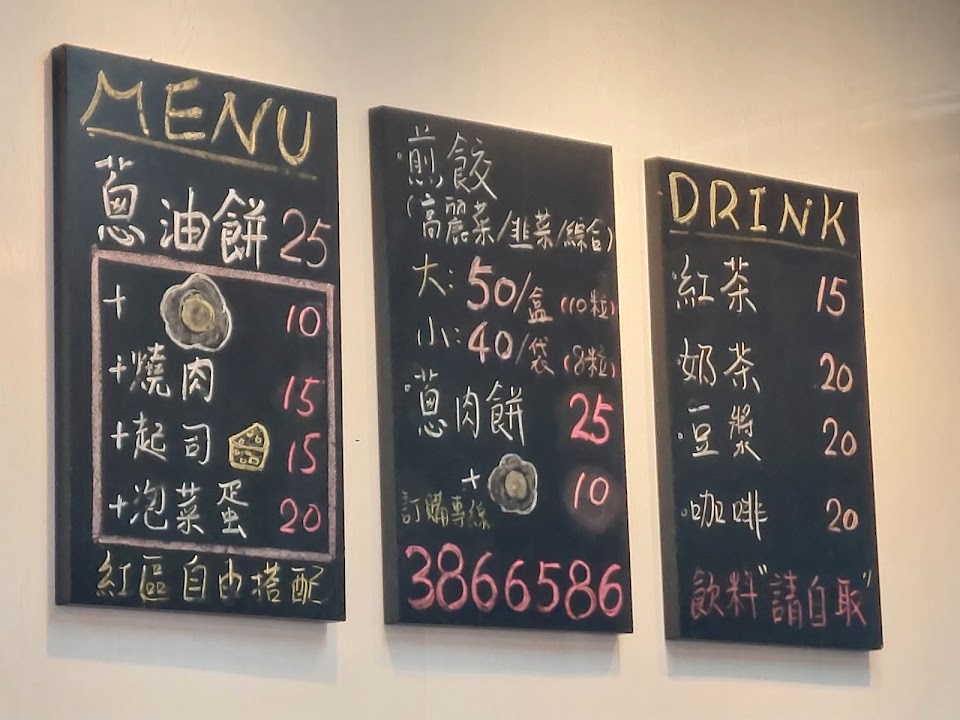 MENU
蔥油餅 25
+ 10
+燒肉 15
+起司 15
+泡菜蛋 20
紅區自由搭配
煎餃
(高麗菜/韭菜/綜合)
大: 50/盒 (10粒)
小: 40/袋 (8粒)
蔥肉餅 25
+ 10
訂購專線
3866586
DRINK
紅茶 15
奶茶 20
豆漿 20
咖啡 20
飲料"請自取"